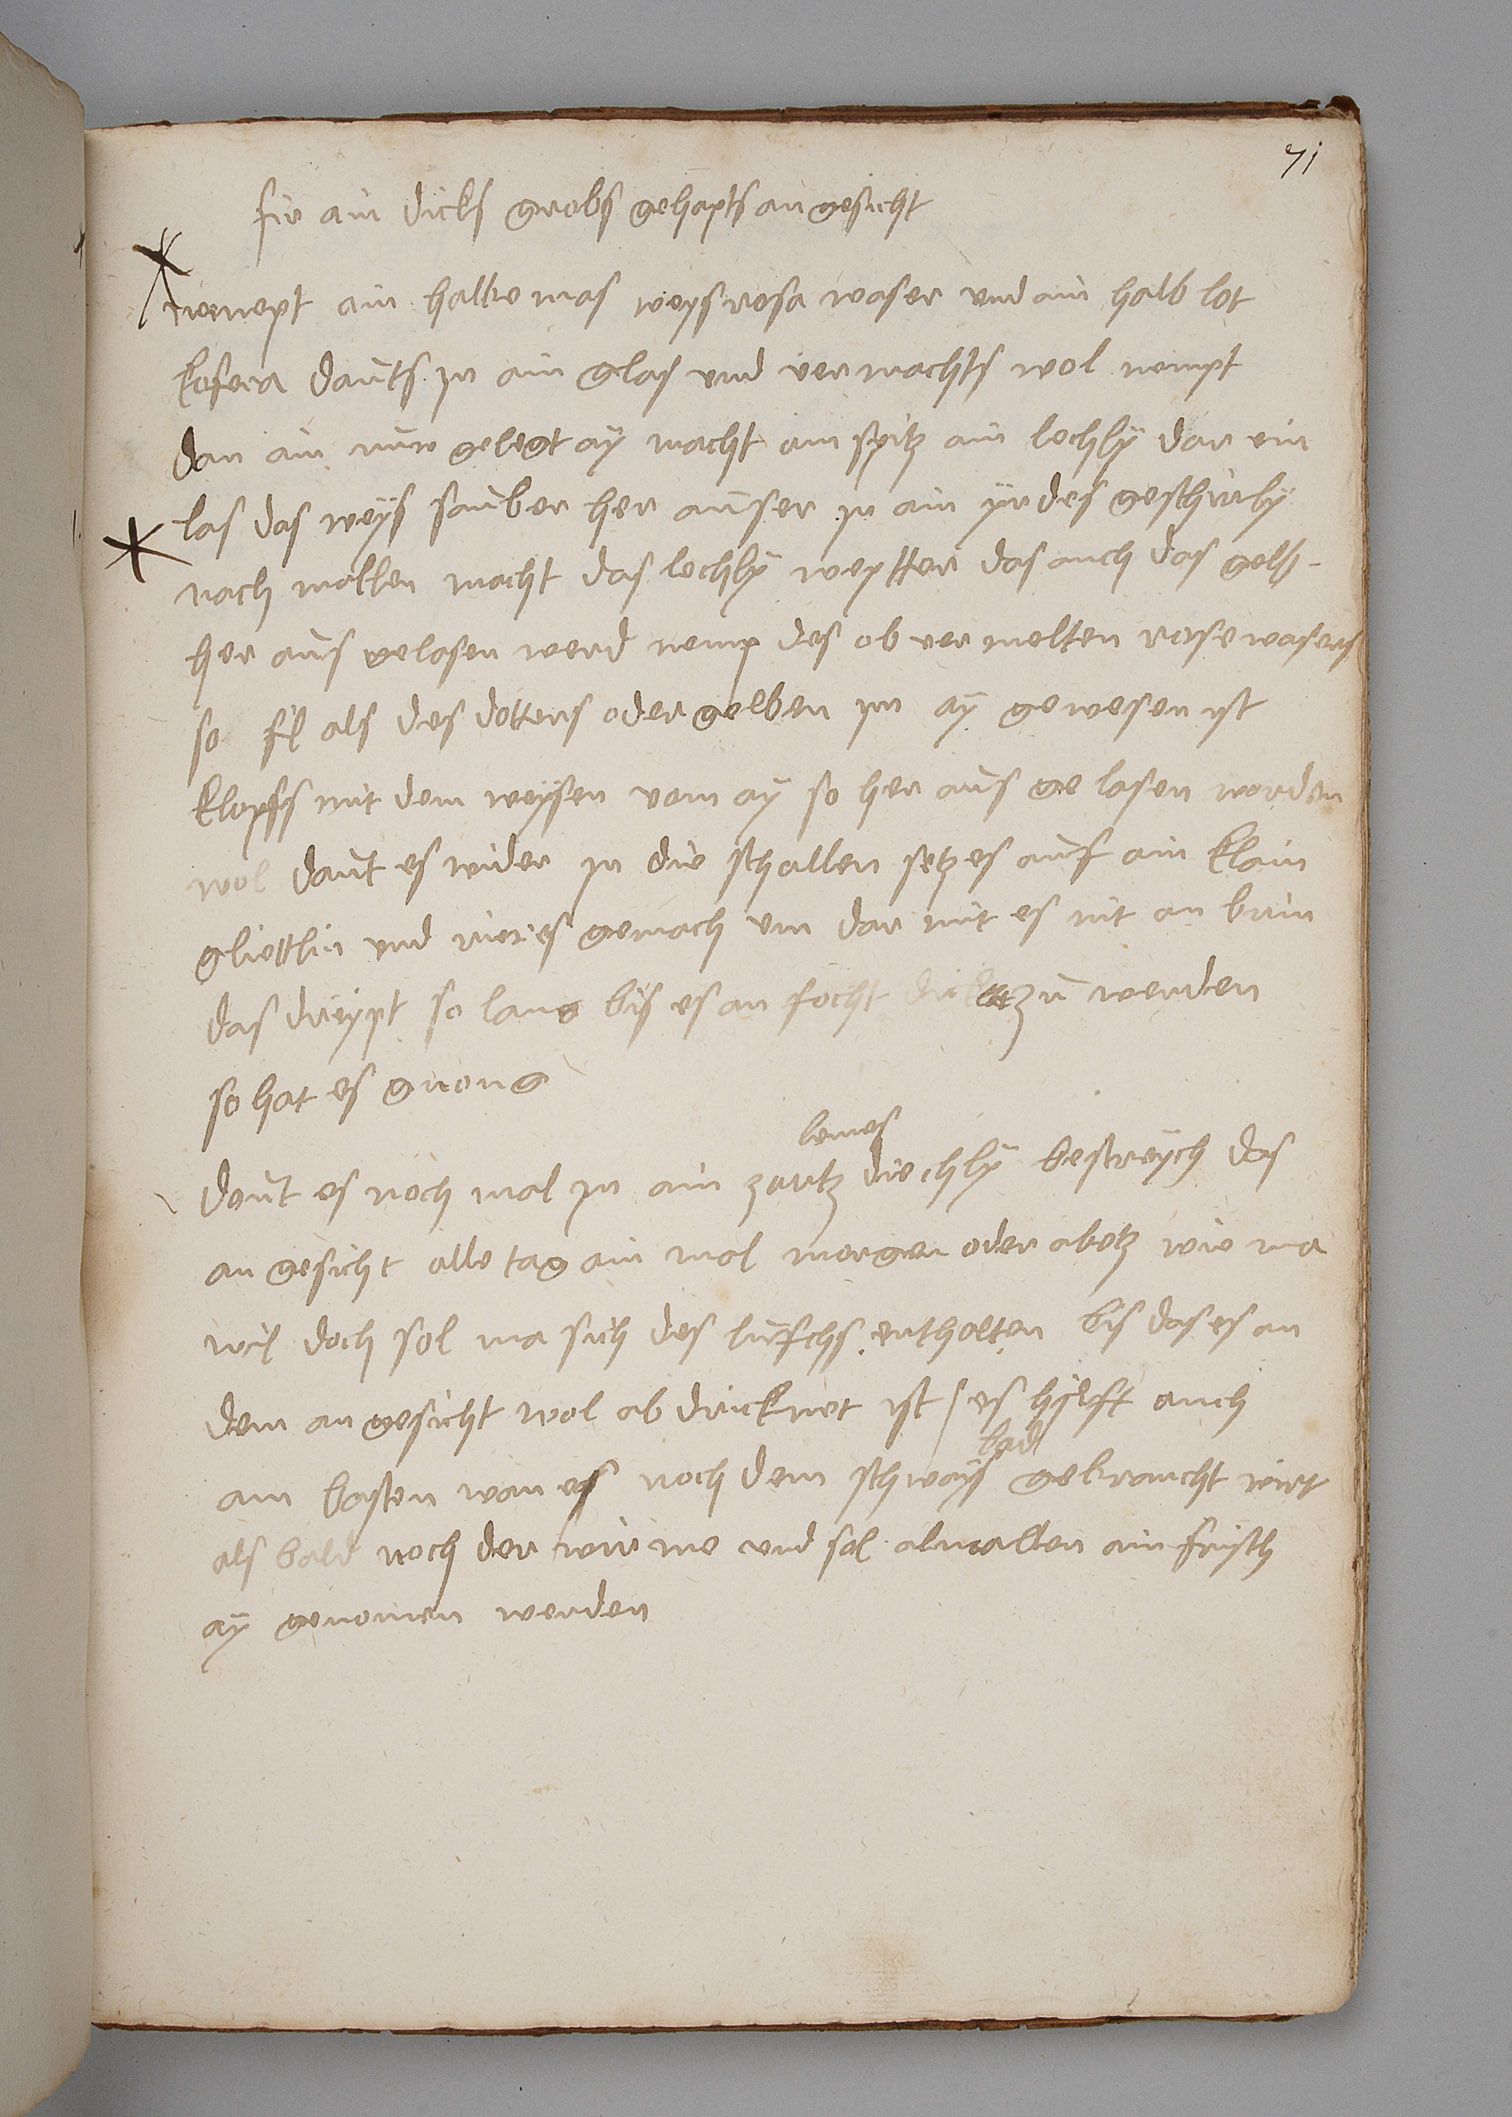 71
fir ain dicks grobs gehapts an gesicht
nempt ain halbe mas weys rosa waser und ain halb lot
kofera dauts in ain glas und vermachts wol nempt
dan ain nuw gelegt aÿ macht am spitz ain lochlÿ dar ein
las das weÿs sauber her auser in ain ÿrdes geschirlÿ
nach mallen macht das lechlÿ weytter das auch das gelb
her aus gelasen werd nemp des ob vermelten rosewasers
so fil als des dotters oder gelben im aÿ gewesen ist
klopfs mit dem weysen vom aÿ so her aus ge lasen worden
wol daut es wider in die schallen setz es auf ain klain
gliettlin und rier es gemach um dar mit es nit an brin
das dreypt so lang bis es an focht dick zu werden
so hat es gnoug
lemes
dout es noch mal in ain zartz diechlÿ bestreÿch das
an gesicht alle tag ain mal morgen oder abetz wie ma
wil doch sol ma sich des lufchs enthalten bis das es an
dem an gesicht wol ab dricknet ist / es hilft auch
bad
am basten wan es noch dem schways gebraucht wirt
als bald noch der wirme und sol almallen ain frisch
aÿ genomen werden